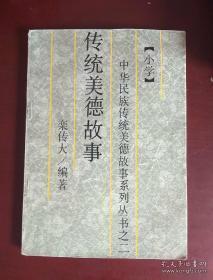 【小学】
中华民族传统美德故事系列丛书之二
传统美德故事
栾传大／编著